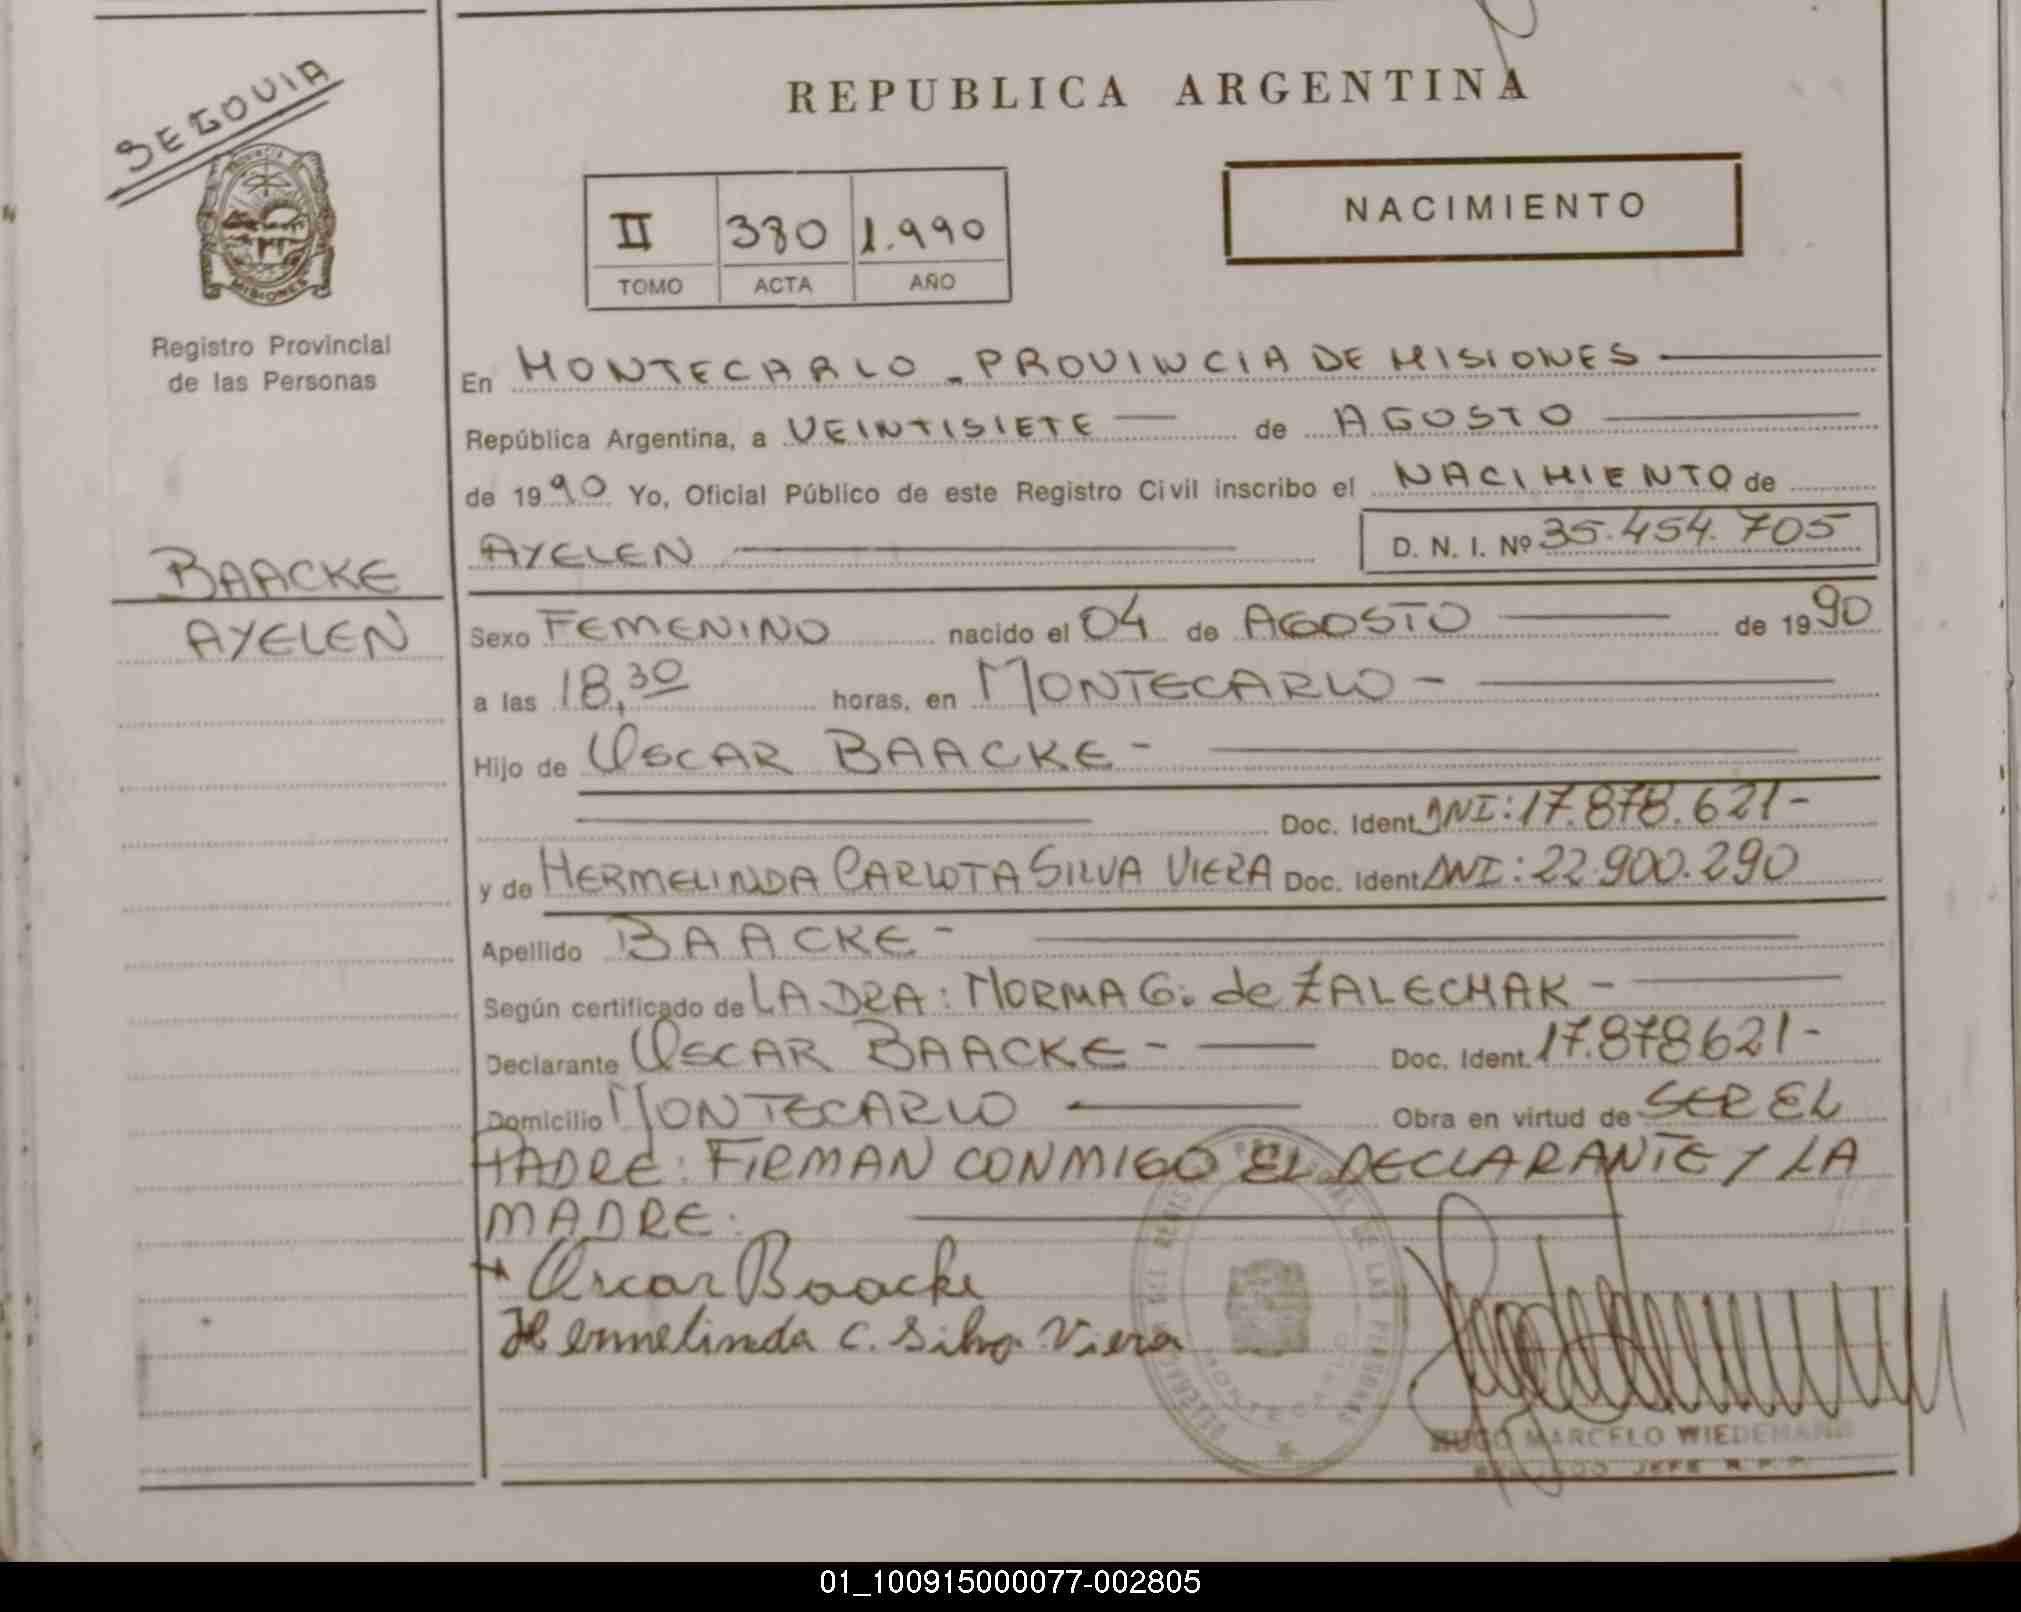 SEGOVIA
PROVINCIA DE
MISIONES
Registro Provincial
de las Personas
BAACKE
AYELEN
REPUBLICA ARGENTINA
II 380 1.990
TOMO ACTA AÑO
NACIMIENTO
En MONTECARLO - PROVINCIA DE MISIONES
República Argentina, a VEINTISIETE de AGOSTO
de 1990 Yo, Oficial Público de este Registro Civil inscribo el NACIMIENTO de
AYELEN D. N. I. Nº 35.454.705
Sexo FEMENINO nacido el 04 de AGOSTO de 1990
a las 18,30 horas, en MONTECARLO -
Hijo de OSCAR BAACKE -
Doc. Ident. DNI: 17.878.621-
y de HERMELINDA CARLOTA SILVA VIERA Doc. Ident. DNI: 22.900.290
Apellido BAACKE -
Según certificado de LA DRA: NORMA G. de ZALECHAK -
Declarante OSCAR BAACKE - Doc. Ident. 17.878621-
Domicilio MONTECARLO Obra en virtud de SER EL
PADRE: FIRMAN CONMIGO EL DECLARANTE Y LA
MADRE.
Oscar Baacke
Hermelinda C. Silva Viera
DE LAS PERSONAS
MONTECARLO
HUGO MARCELO WIEDEMANN
JEFE R. P. P.
01_100915000077-002805